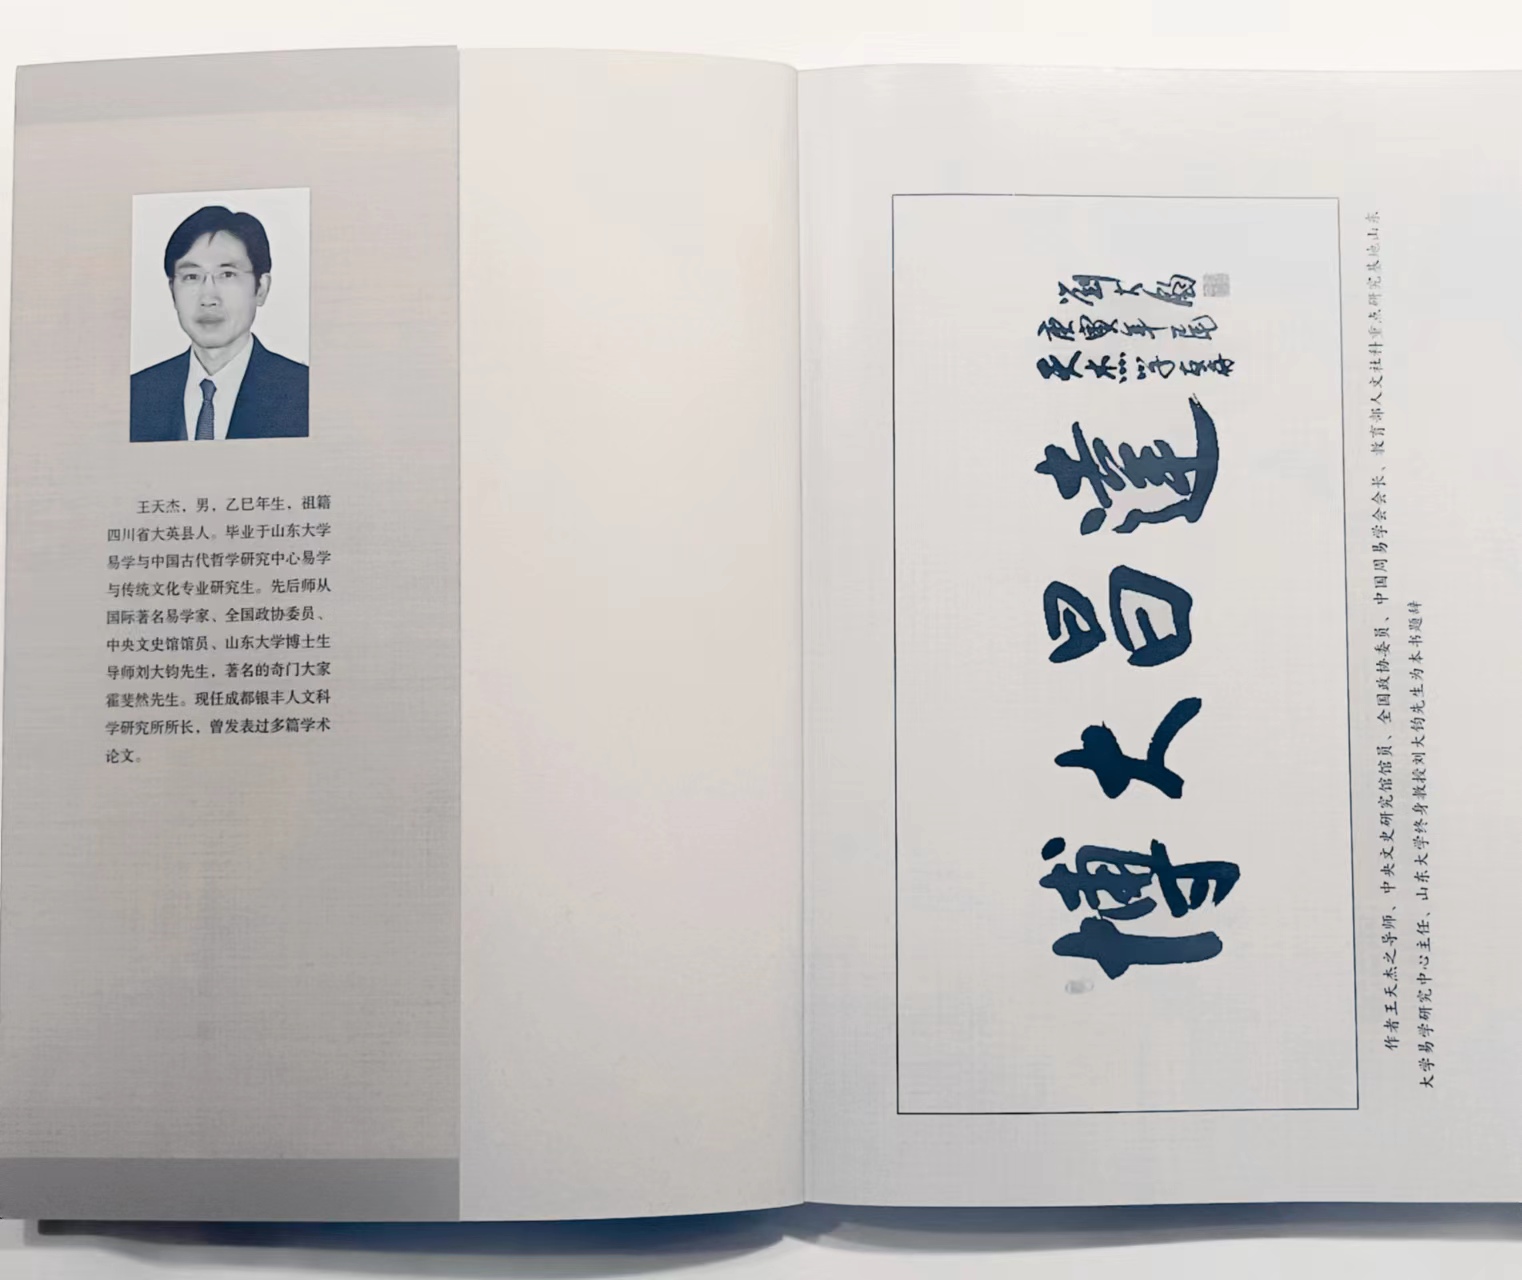 王天杰，男，乙巳年生，祖籍
四川省大英县人。毕业于山东大学
易学与中国古代哲学研究中心易学
与传统文化专业研究生。先后师从
国际著名易学家、全国政协委员、
中央文史馆馆员、山东大学博士生
导师刘大钧先生，著名的奇门大家
霍斐然先生。现任成都银丰人文科
学研究所所长，曾发表过多篇学术
论文。
博大昌達
天杰
庚寅年
劉大鈞
作者王天杰之导师、中央文史研究馆馆员、全国政协委员、中国周易学会会长、教育部人文社科重点研究基地山东
大学易学研究中心主任、山东大学终身教授刘大钧先生为本书题辞